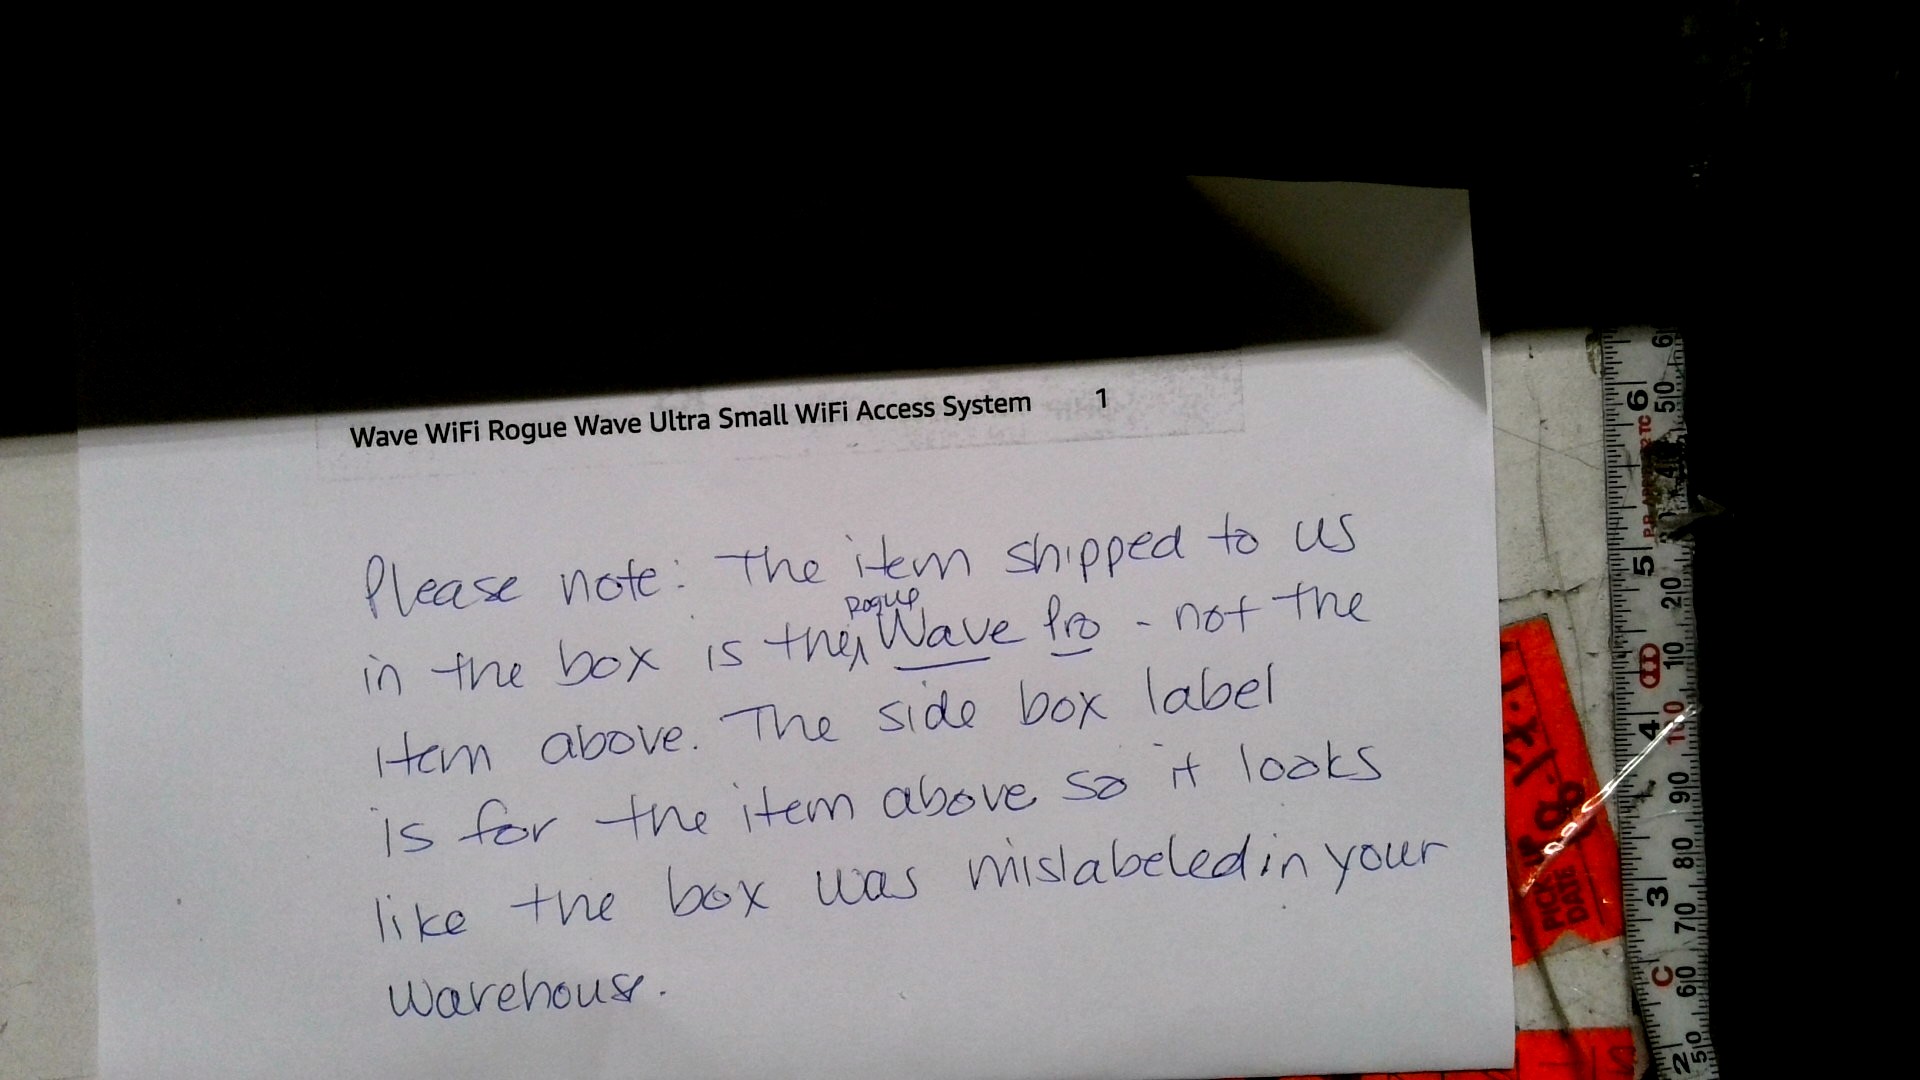 Wave WiFi Rogue Wave Ultra Small WiFi Access System 1
Please note: The item shipped to us
in the box is the Rogue Wave Pro - not the
item above. The side box label
is for the item above so it looks
like the box was mislabeled in your
warehouse.
PICK UP
DATE
6 5 4 3 2
60 50 40 30 20 10 110 90 80 70 60 50